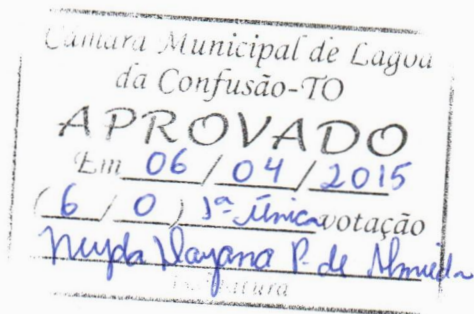 Câmara Municipal de Lagoa
da Confusão-TO
APROVADO
Em 06 / 04 / 2015
( 6 / 0 ) 1ª Única votação
Dayana P. de Almeida
Assinatura